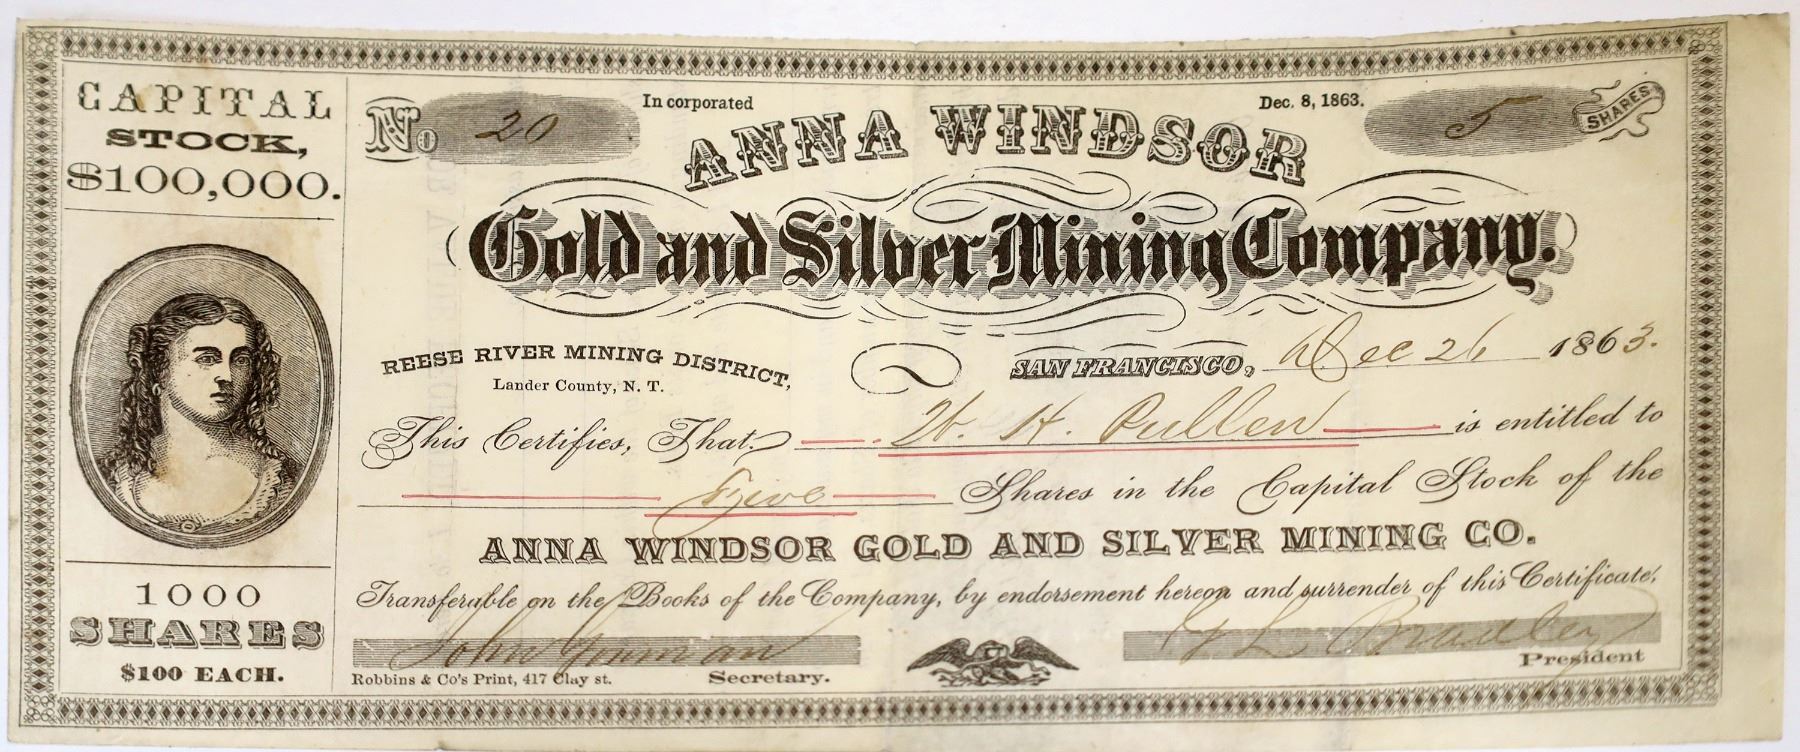 CAPITAL
STOCK,
$100,000.
1000
SHARES
$100 EACH.
No 20
In corporated
Dec. 8, 1863.
5 SHARES
ANNA WINDSOR
Gold and Silver Mining Company.
REESE RIVER MINING DISTRICT,
Lander County, N. T.
SAN FRANCISCO, Dec 26 1863.
This Certifies, That W. H. Pullen is entitled to
Five Shares in the Capital Stock of the
ANNA WINDSOR GOLD AND SILVER MINING CO.
Transferable on the Books of the Company, by endorsement hereon and surrender of this Certificate,
John
Bradley
Robbins & Co's Print, 417 Clay st.
Secretary.
President